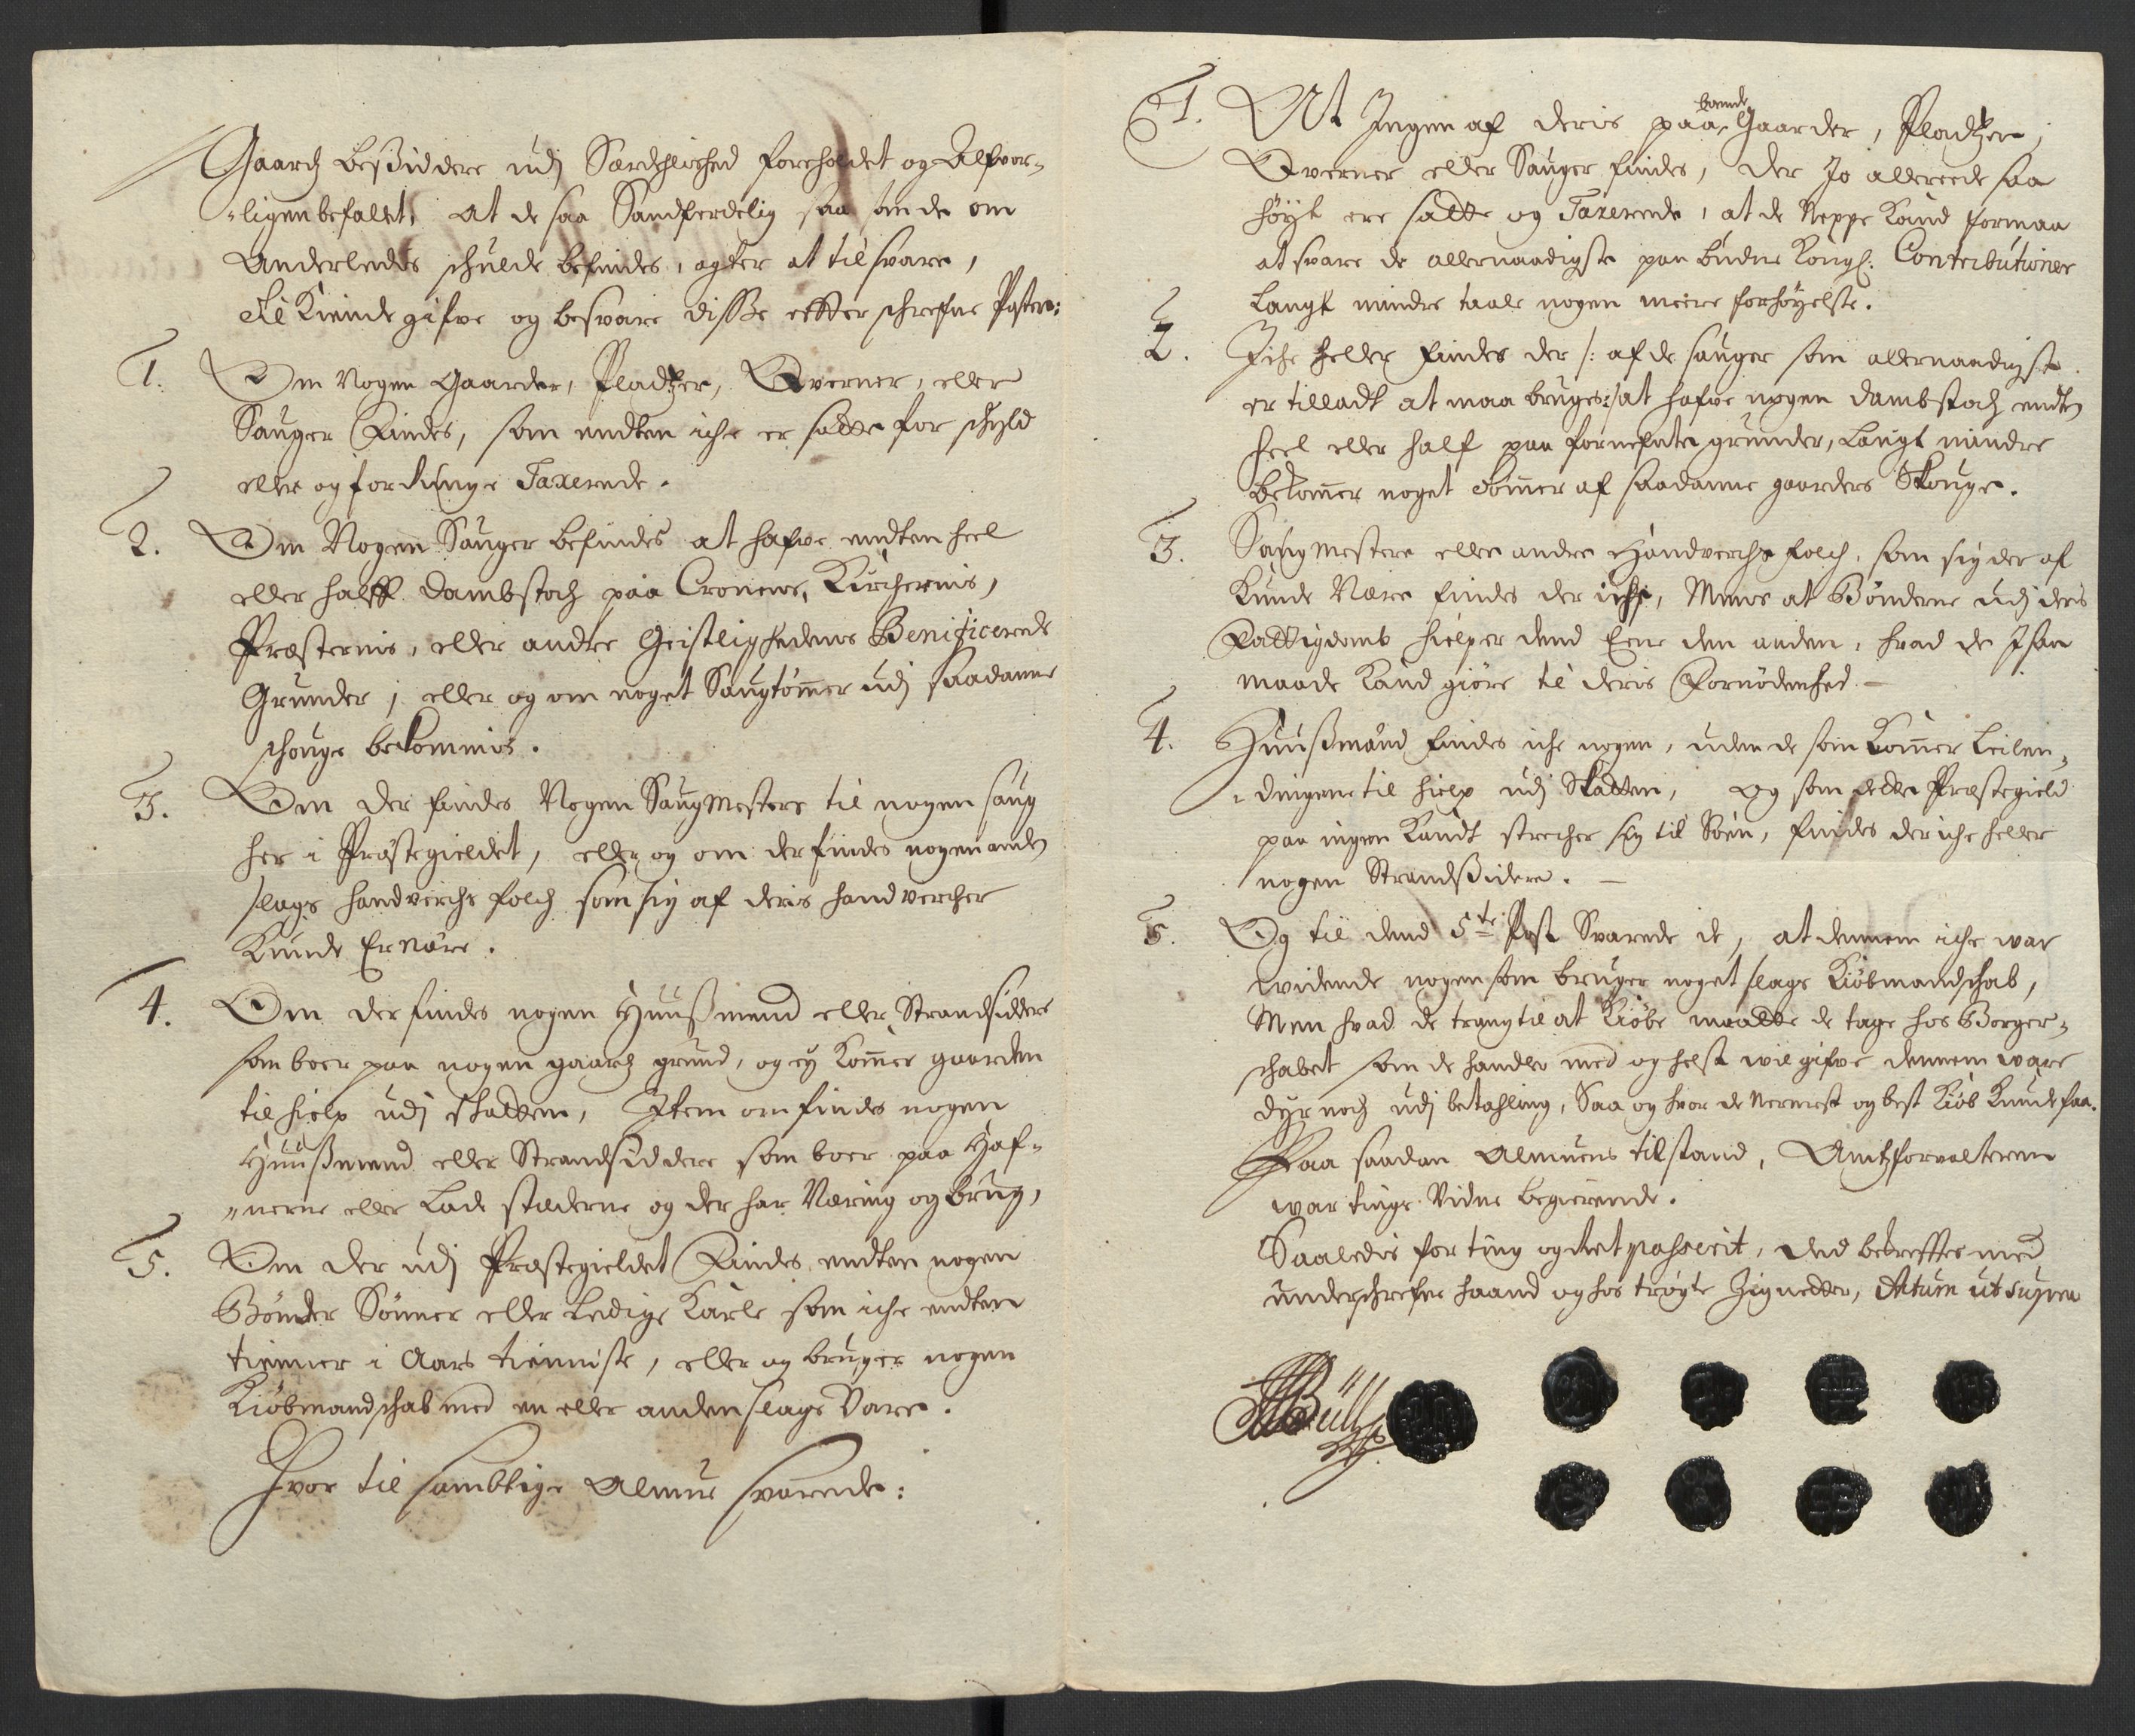 Gaard beßiddere udj Særdehlished foreholdet og Alfvor-
"ligen befallet, at de saa Sandferdelig saa som de om
Anderledis schulde befindes, agter at tilsvare,
til Kiende gifve og besvare disse effter schrefne Poster:
1. Om Nogen Gaarder, Pladtzer, Qverner, eller
Sauger Findes, som endten iche er satte for schyld
eller og for Tax Taxerede.
2. Om Nogen Sauger befindes at hafve endten heel
eller halff dambstoch paa Cronens, Kirchernis,
Præsternis, eller andre Geistlighedens Benificerede
Grunder, eller og om noget Saugtømmer udj saadanne
schouge bekommis.
3. Om der findes Nogen Saug Mestere til nogen saug
her i Præstegieldet, eller og om der findes nogen anden
slags handverchs folch som sig af deris handvercher
Kunde Ernære.
4. Om der findes nogen Huußmend eller Strandsiddere
som boer paa nogen gaards grund, og ey Kommer gaarden
til hielp udj schatten, Item om findes nogen
Huußmend eller Strandsiddere som boer paa Haf-
"nerne eller Lade stæderne og der har Næring og brug,
5. Om der udj Præstegieldet Findes endten nogen
Bønder Sønner eller Ledige Karle som iche endten
tienner i Aars tienniste, eller og bruger nogen
Kiøbmandschab med en eller anden slags Vare.
Hvor til samblige Almue svarede:
1. At Ingen af deris paa boende Gaarder, Pladtzer,
Qverner eller Sauger findes, der Jo allereede saa
høyt ere satte og Taxerede, at de Neppe Kand formaa
at svare de allernaadigste paa budne Kongl: Contributioner
Langt mindre taale nogen meere forhøyelse.
2. Iche heller findes der /: af de sauger som allernaadigst
er tilladt at maa bruges :/ at hafve nogen dambstoch endten
heel eller half paa fornefnte grunder, Langt mindre
bekommer noget tømmer af saadanne gaarders Skouge.
3. Saug Mestere eller andre Handverchs folch, som sig der af
Kunde Nære findes der iche, Mens at Bønderne udj deris
Fattigdomb hielper dend Eene den anden, hvad de I saa
maade Kand giøre til deris Fornødenhed. —
4. Huußmænd findes iche nogen, uden de som Kommer Leilen-
"dingene til hielp udj Skatten, Og som dette Præstegield
paa ingen Kandt strecher sig til Søen, findes der iche heller
nogen Strandßidere. —
5. Og til dend 5te Post Svarede de, at dennem iche war
widende nogen som bruger noget slags Kiøbmandschab,
Men hvad de trang til at Kiøbe maatte de tage hos Borger-
schabet som de handler med og helst wil gifve dennem ware
dyr noch udj betahling, Saa og hvor de nermest og best Kiøb Kunde faa.
Paa saadan Almuens tilstand, Amtzforvalteren
war tings Vidne begierende.
Saaledis for ting og ret passerit, ded bekreffter med
underschrefne haand og hos trøgte Zignetter, Actum ut supra